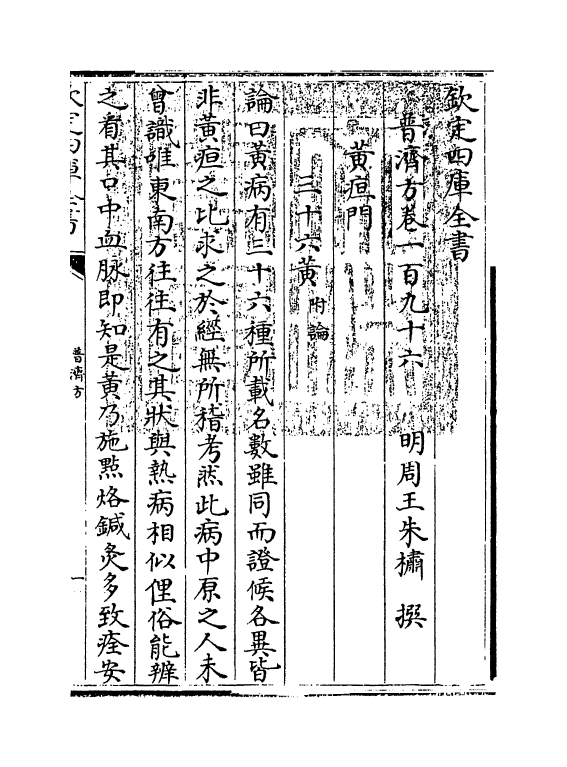 欽定四庫全書
普濟方卷一百九十六　明周王朱橚　撰
黄疸門
三十六黄附論
論曰黄病有三十六種所載名數雖同而證候各異皆
非黄疸之比求之於經無所稽考然此病中原之人未
曾識唯東南方往往有之其狀與熱病相似俚俗能辨
之看其口中血脉即知是黄乃施㸃烙鍼灸多致痊安
普濟方
一